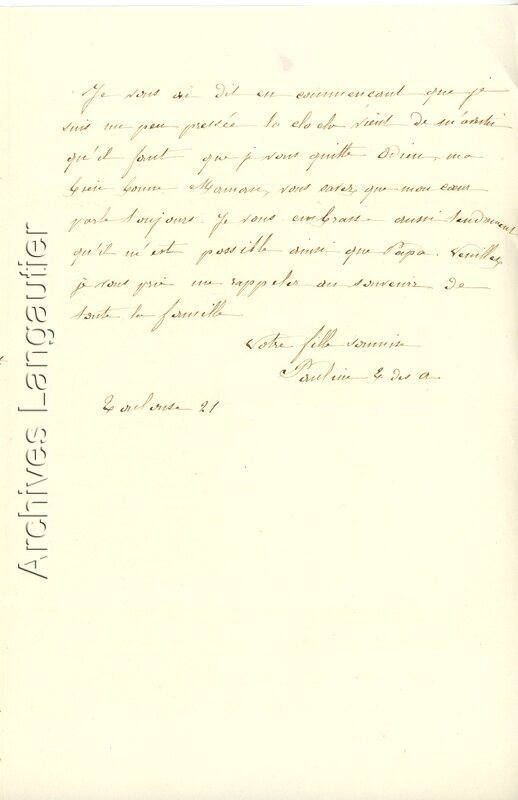 Je vous ai dit en commencant que je
suis un peu pressée la cloche vient de m'avertir
qu'il faut que je vous quitte Adieu, ma
bien bonne Maman, vous savez que mon cœur
parle toujours. Je vous embrasse aussi tendrement
qu'il m'est possible ainsi que Papa. Veuillez
je vous prie me rappeler au souvenir de
toute la famille
Votre fille soumise
Pauline E des a
Toulouse 21
Archives Langautier